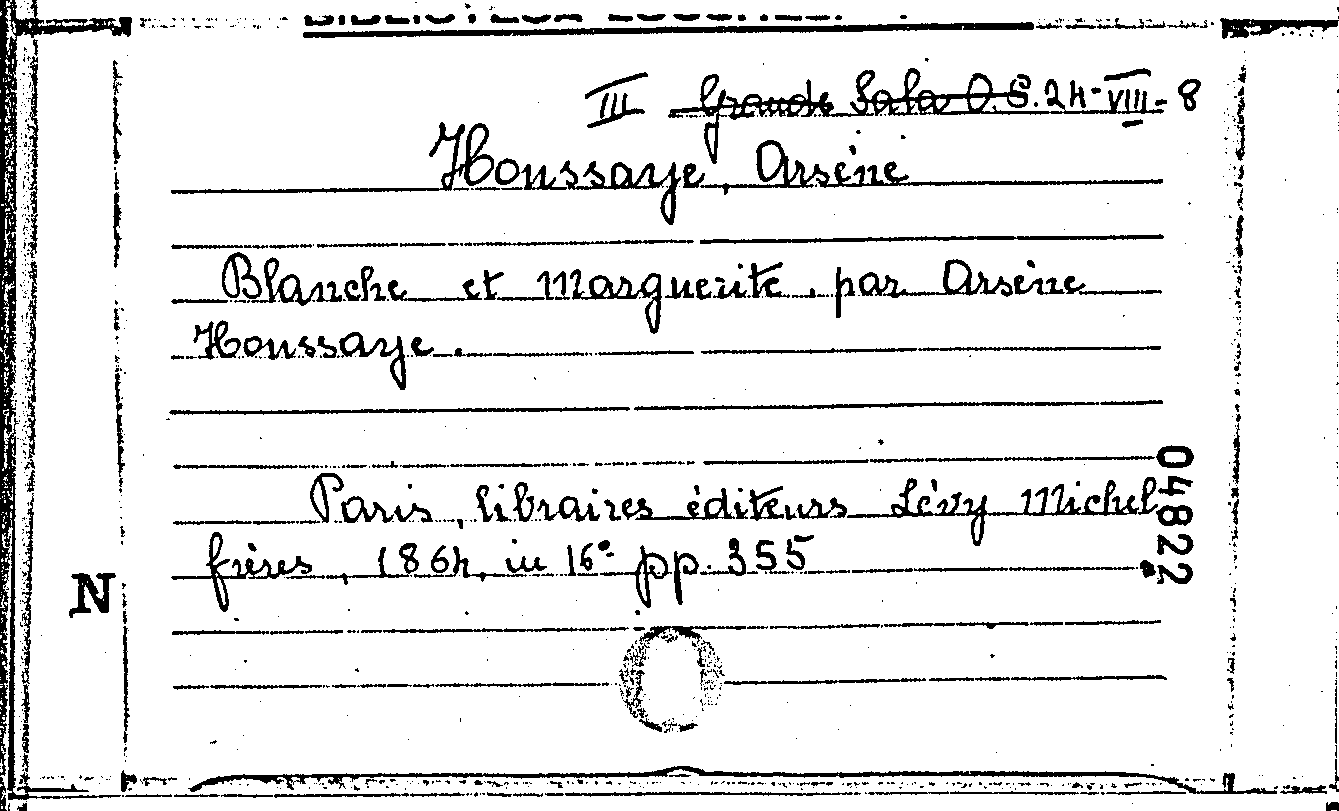 III Grande Sala O.S. 24-VIII-8
Houssaye, Arsène
Blanche et Marguerite, par Arsène
Houssaye.
Paris, libraires éditeurs Lévy Michel
frères, 1864, in 16° pp. 355
04822
N